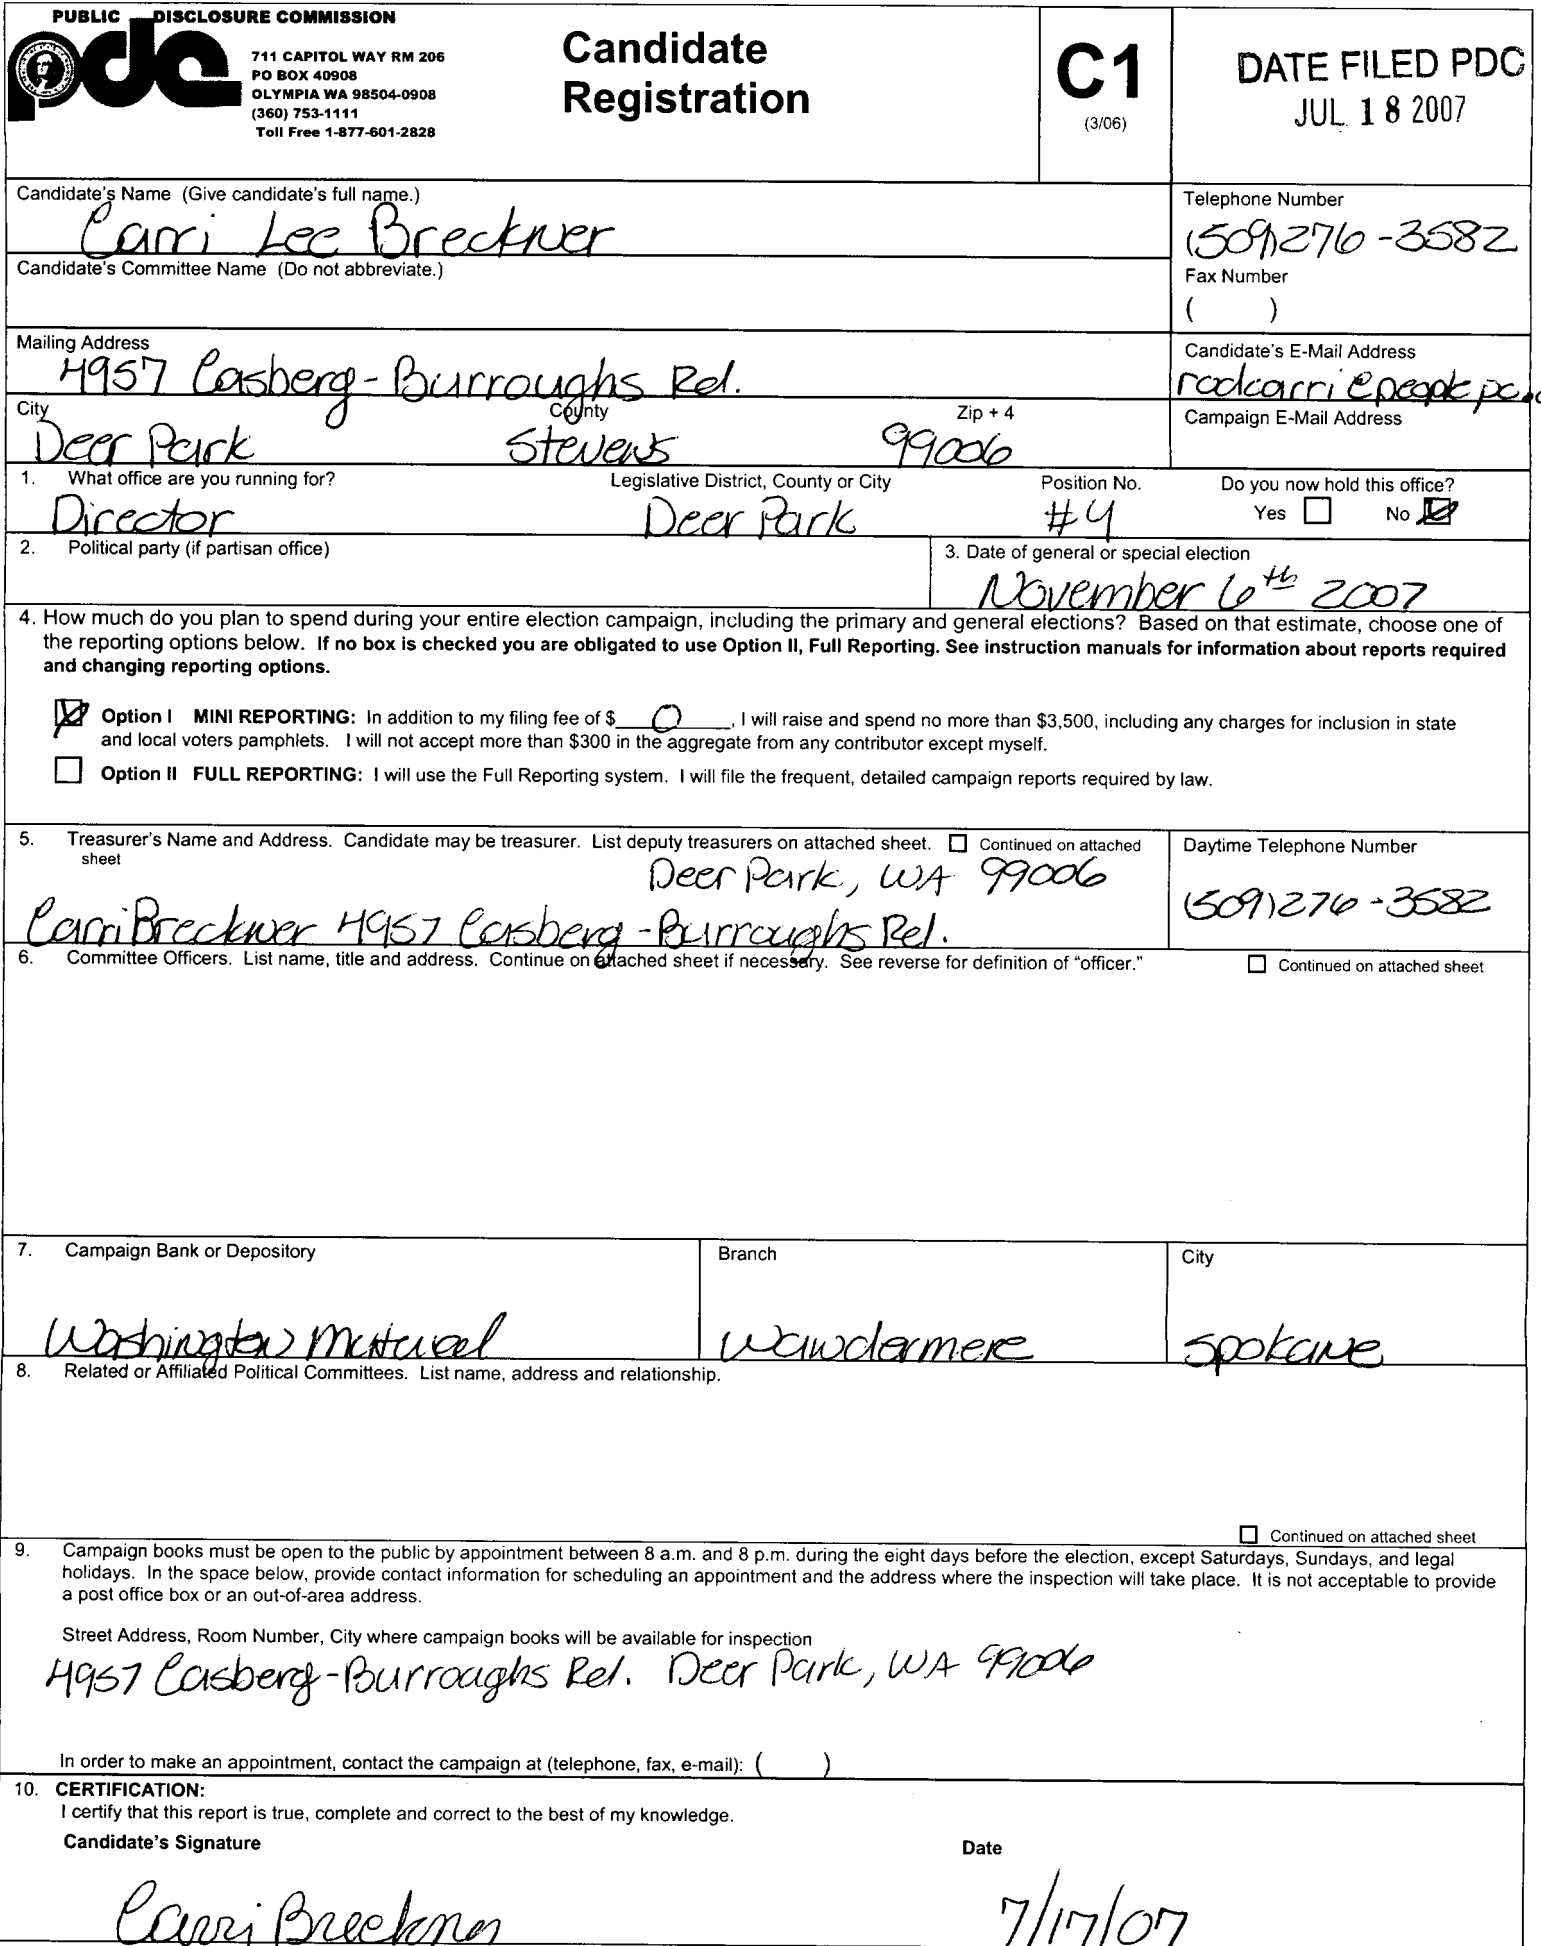 PUBLIC DISCLOSURE COMMISSION
pdc
711 CAPITOL WAY RM 206
PO BOX 40908
OLYMPIA WA 98504-0908
(360) 753-1111
Toll Free 1-877-601-2828
Candidate
Registration
C1
(3/06)
DATE FILED PDC
JUL 18 2007
Candidate's Name (Give candidate's full name.)
Carri Lee Breckner
Telephone Number
(509)276-3582
Candidate's Committee Name (Do not abbreviate.)
Fax Number
( )
Mailing Address
4957 Casberg-Burroughs Rd.
Candidate's E-Mail Address
rodcarri@peoplepc.c
City County Zip + 4
Deer Park Stevens 99006
Campaign E-Mail Address
1. What office are you running for? Legislative District, County or City Position No. Do you now hold this office?
Director Deer Park #4 Yes No
2. Political party (if partisan office)
3. Date of general or special election
November 6th 2007
4. How much do you plan to spend during your entire election campaign, including the primary and general elections? Based on that estimate, choose one of
the reporting options below. If no box is checked you are obligated to use Option II, Full Reporting. See instruction manuals for information about reports required
and changing reporting options.
Option I MINI REPORTING: In addition to my filing fee of $ 0 , I will raise and spend no more than $3,500, including any charges for inclusion in state
and local voters pamphlets. I will not accept more than $300 in the aggregate from any contributor except myself.
Option II FULL REPORTING: I will use the Full Reporting system. I will file the frequent, detailed campaign reports required by law.
5. Treasurer's Name and Address. Candidate may be treasurer. List deputy treasurers on attached sheet. Continued on attached
sheet
Deer Park, WA 99006
Carri Breckner 4957 Casberg-Burroughs Rd.
Daytime Telephone Number
(509)276-3582
6. Committee Officers. List name, title and address. Continue on attached sheet if necessary. See reverse for definition of "officer." Continued on attached sheet
7. Campaign Bank or Depository
Washington Mutual
Branch
Wandermere
City
Spokane
8. Related or Affiliated Political Committees. List name, address and relationship.
Continued on attached sheet
9. Campaign books must be open to the public by appointment between 8 a.m. and 8 p.m. during the eight days before the election, except Saturdays, Sundays, and legal
holidays. In the space below, provide contact information for scheduling an appointment and the address where the inspection will take place. It is not acceptable to provide
a post office box or an out-of-area address.
Street Address, Room Number, City where campaign books will be available for inspection
4957 Casberg-Burroughs Rd. Deer Park, WA 99006
In order to make an appointment, contact the campaign at (telephone, fax, e-mail): ( )
10. CERTIFICATION:
I certify that this report is true, complete and correct to the best of my knowledge.
Candidate's Signature Date
Carri Breckner 7/17/07